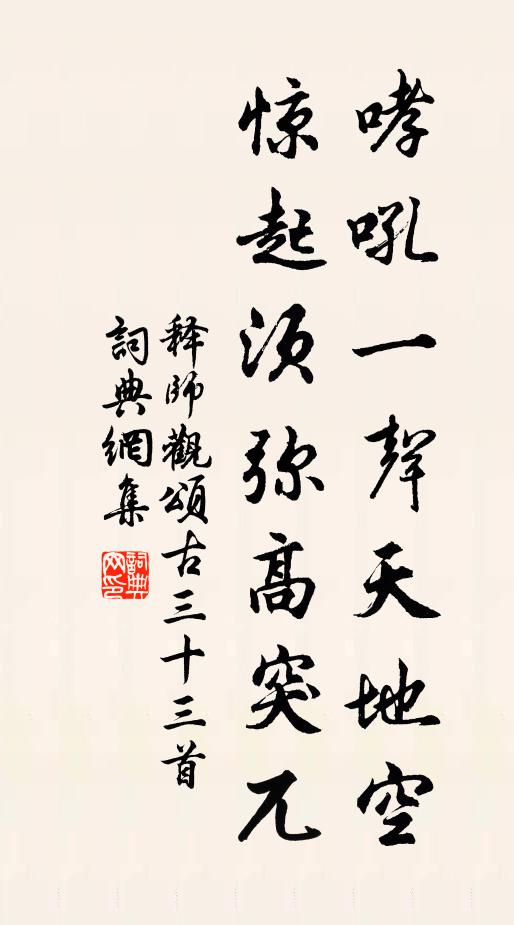 哮吼一聲天地空
惊起须弥高突兀
释師觀頌古三十三首
詞典網集
詞典网印